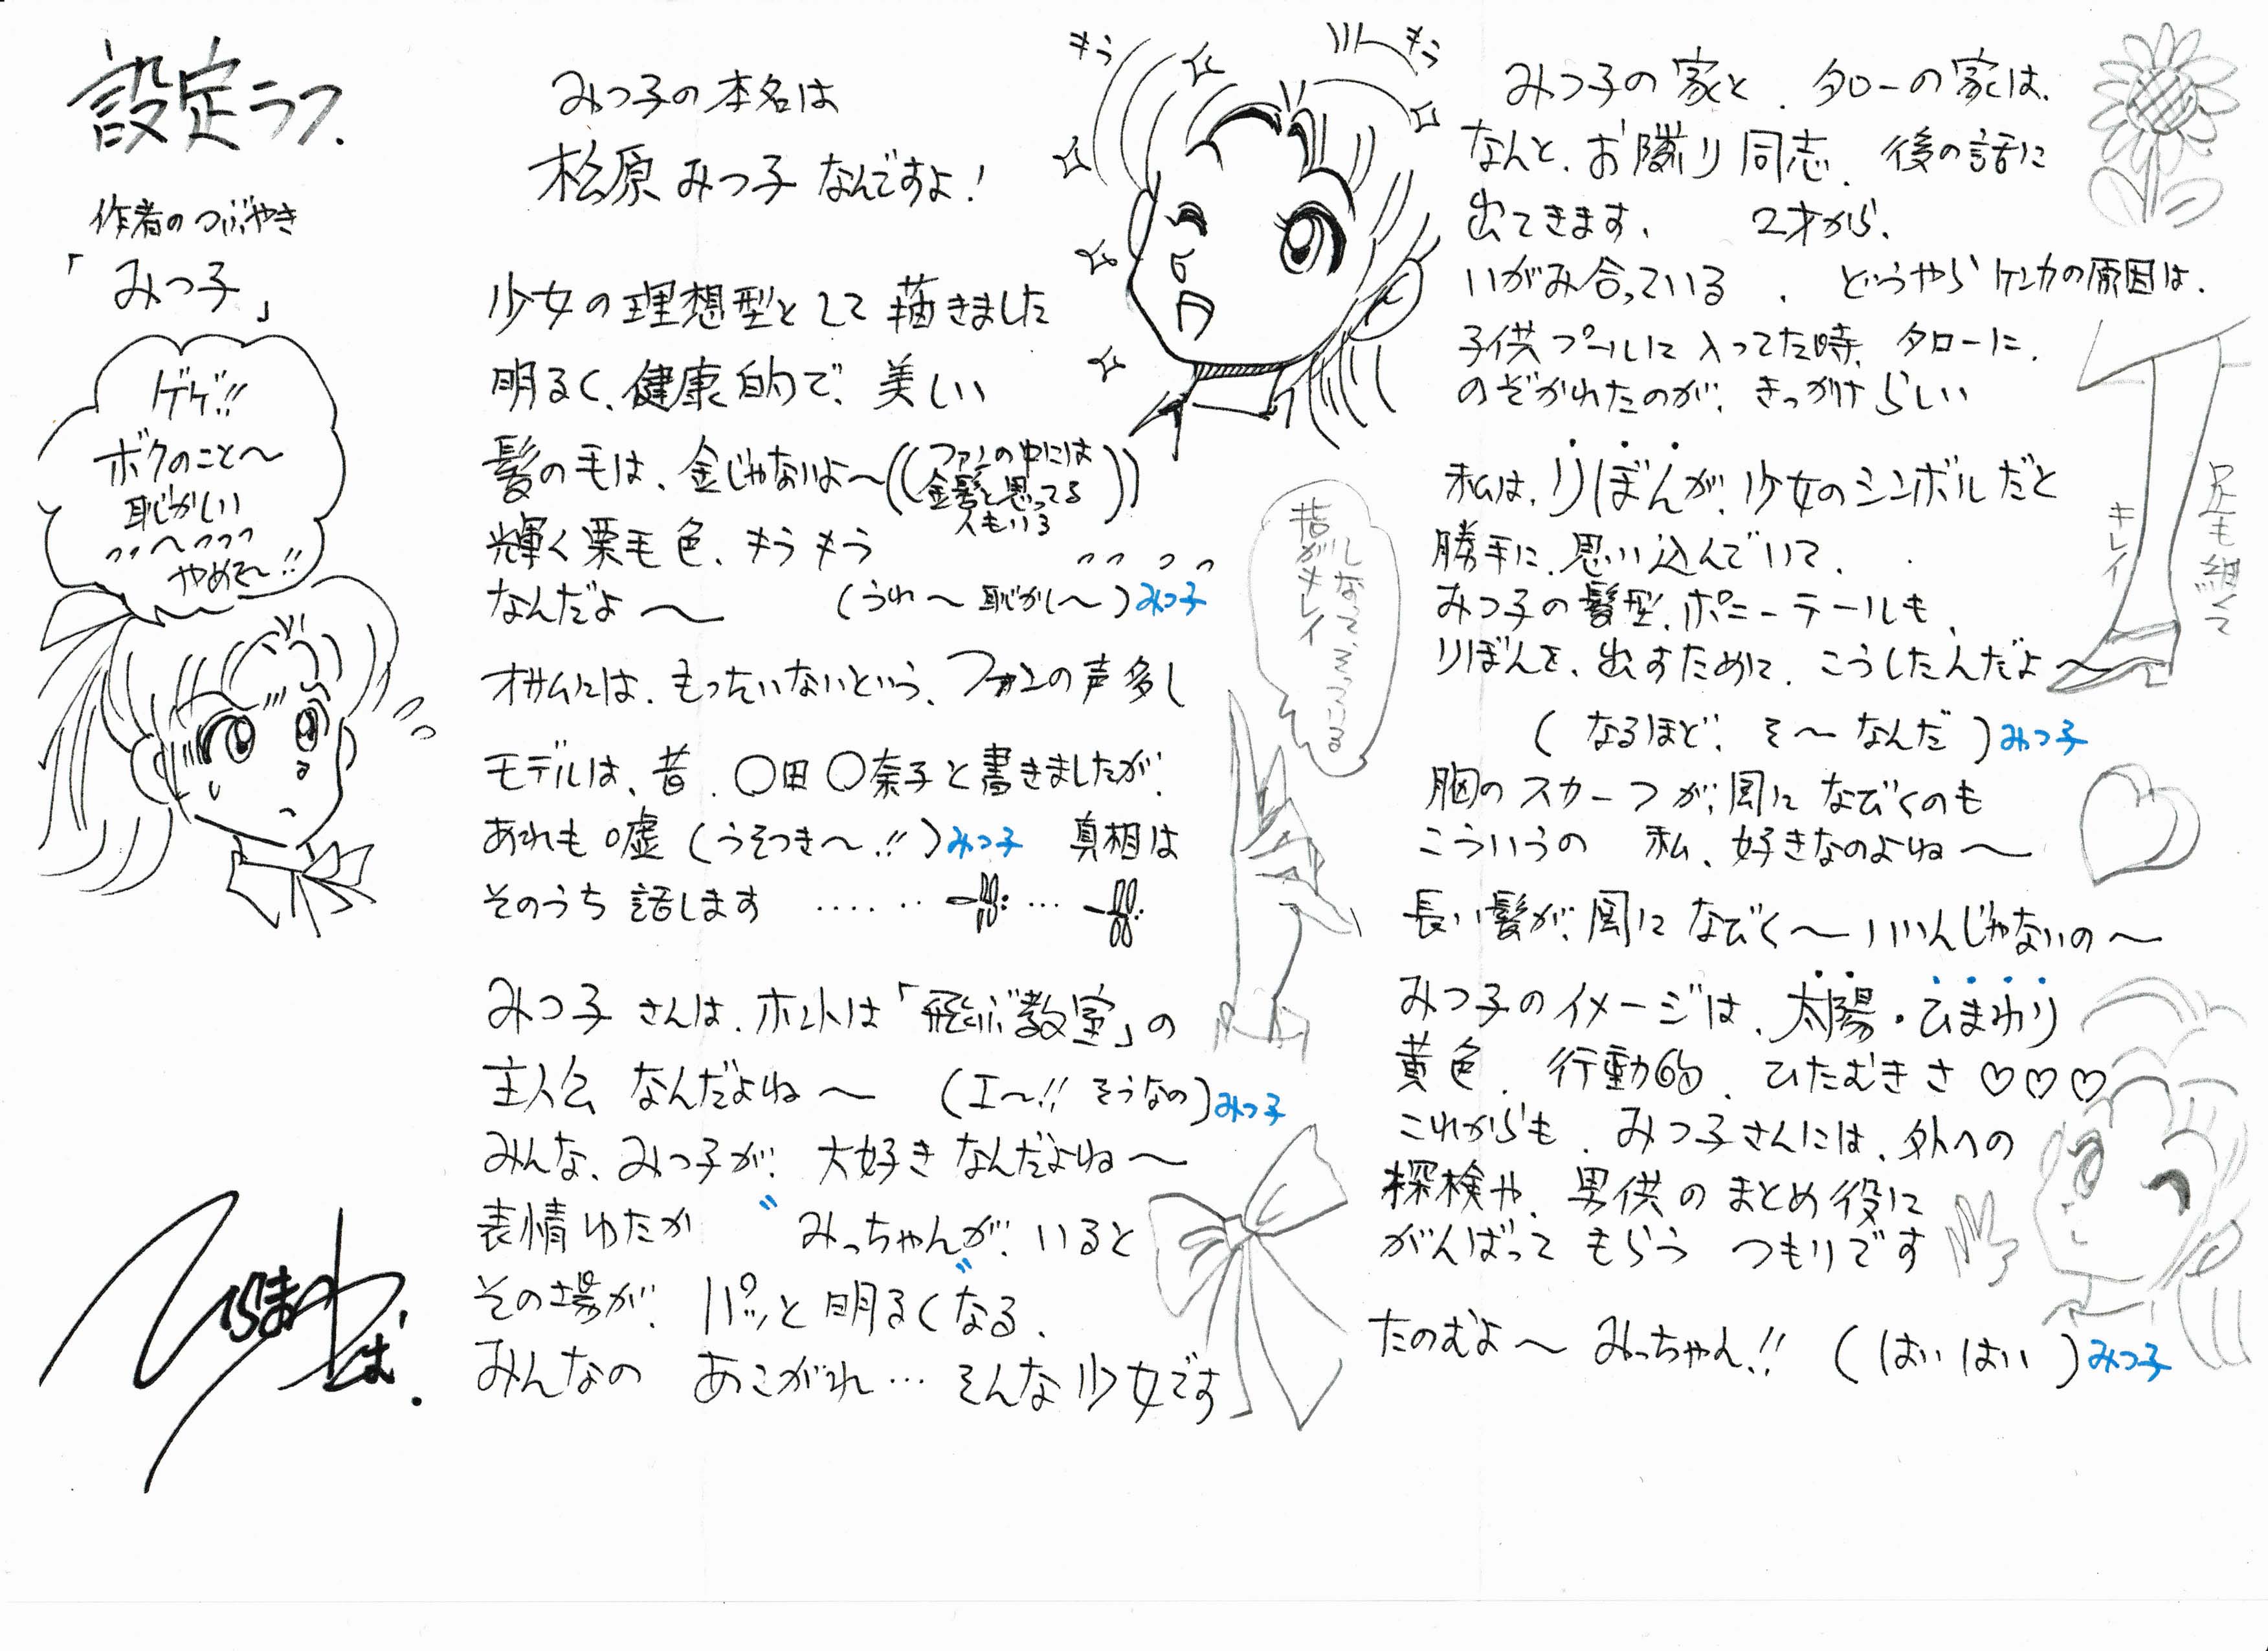 設定ラフ.
作者のつぶやき
「みつ子」
ゲゲ!!
ボクのこと〜
恥かしい
っっ〜っっっ
やめて〜!!
みつ子の本名は
松原みつ子なんですよ!
少女の理想型として描きました
明るく、健康的で、美しい
髪の毛は、金じゃないよ〜((ファンの中には
金髪と思ってる
人もいる))
輝く栗毛色、キラキラ
なんだよ〜 (うれ〜恥かし〜)みつ子
オサムには、もったいないという、ファンの声多し
モデルは、昔、〇田〇奈子と書きましたが、
あれも嘘(うそつき〜!!)みつ子 真相は
そのうち話します ‥‥‥ ‥‥
みつ子さんは、ホントは「飛ぶ教室」の
主人公なんだよね〜 (エ〜!!そうなの)みつ子
みんな、みつ子が、大好きなんだよね〜
表情ゆたか 〝みっちゃんが、いると
その場が、パッと明るくなる〟、
みんなの あこがれ…そんな少女です
キラ
キラ
みつ子の家と、タローの家は、
なんと、お隣り同志、後の話に
出てきます、 2才から、
いがみ合っている、 どうやらケンカの原因は、
子供プールに入ってた時、タローに、
のぞかれたのが、きっかけらしい
私は、りぼんが、少女のシンボルだと
勝手に、思い込んでいて、
みつ子の髪型、ポニーテールも、
りぼんを、出すために、こうしたんだよ〜
(なるほど、そ〜なんだ)みつ子
胸のスカーフが、風になびくのも
こういうの 私、好きなのよね〜
長い髪が、風になびく〜いいんじゃないの〜
みつ子のイメージは、太陽・ひまわり
黄色、行動的、ひたむきさ♡♡♡
これからも、みつ子さんには、外への
探検や、男供のまとめ役に
がんばってもらう つもりです
たのむよ〜 みっちゃん!! (はいはい)みつ子
足も細くて
キレイ
指がキレイ
しなって